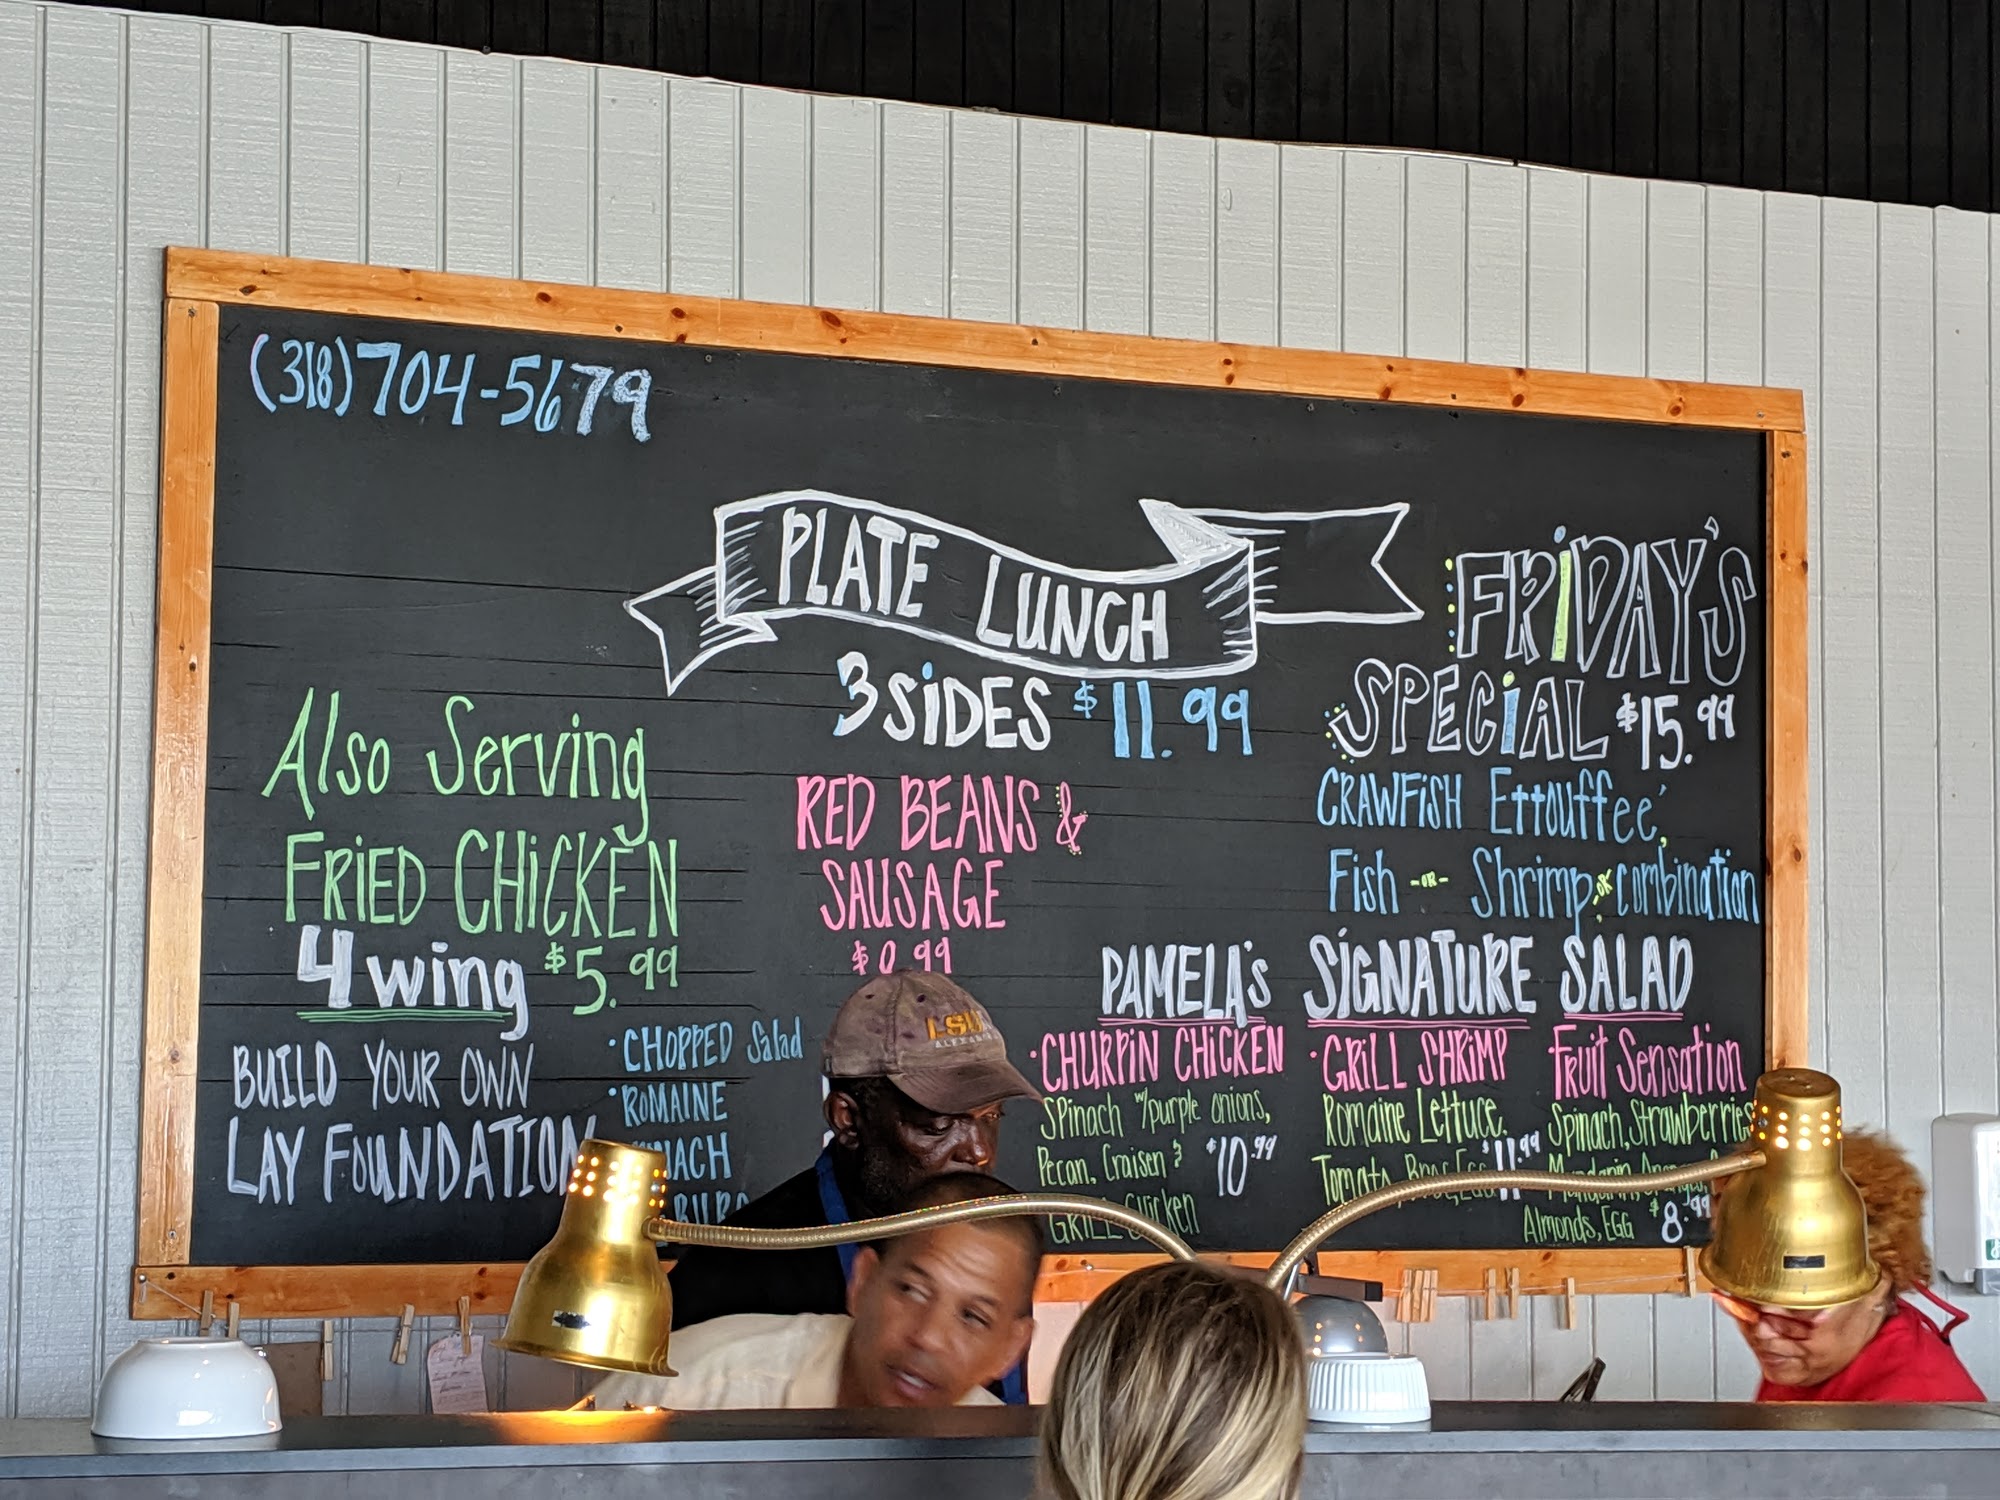 (318) 704-5679
PLATE LUNCH
3 SiDES $11.99
RED BEANS &
SAUSAGE
Also Serving
FRiED CHiCKEN
4 wing $5.99
BUILD YOUR OWN
LAY FOUNDATION
· CHOPPED Salad
· ROMAINE
FRiDAY'S
SPECiAL $15.99
CRAWFiSH Ettouffee',
Fish -OR- Shrimp OR combination
PAMELA'S SiGNATURE SALAD
· CHURPiN CHiCKEN
SPinach w/purple onions,
Pecan, Craisen &
GRILL Chicken
$10.99
· GRiLL SHRiMP
Romaine Lettuce,
Tomato, $11.99
Fruit Sensation
Spinach, Strawberries
Mandarin, Oranges,
Almonds, EGG $8.99
LSU
ALEXANDRIA